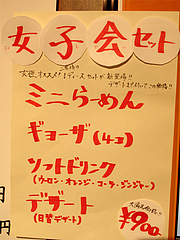 女子会セット
女性にオススメ!レディースセットが新登場!!
デザートまで付いてこの価格!!
ミニらーめん
ギョーザ(4コ)
ソフトドリンク
(ウーロン・オレンジ・コーラ・ジンジャー)
デザート
(日替デザート)
大満足価格!!
¥900
円
円